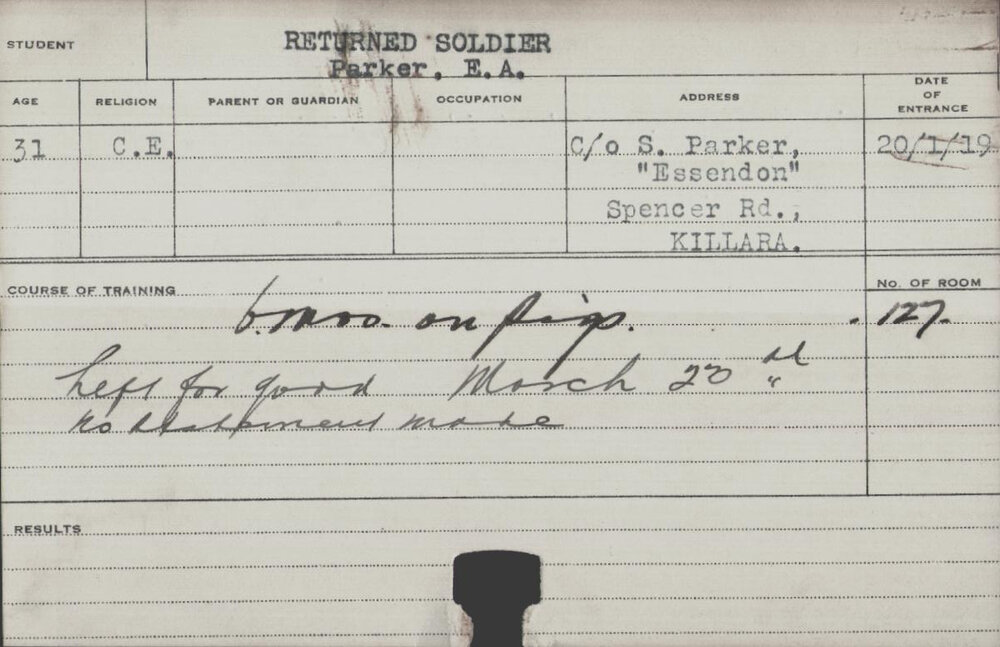 STUDENT
RETURNED SOLDIER
Parker, E.A.
AGE RELIGION PARENT OR GUARDIAN OCCUPATION ADDRESS DATE OF ENTRANCE
31 C.E. C/o S. Parker, 20/1/19
"Essendon"
Spencer Rd.,
KILLARA.
COURSE OF TRAINING No. OF ROOM
6. mos. on pigs. 127.
Left for good March 20
no statement made
RESULTS